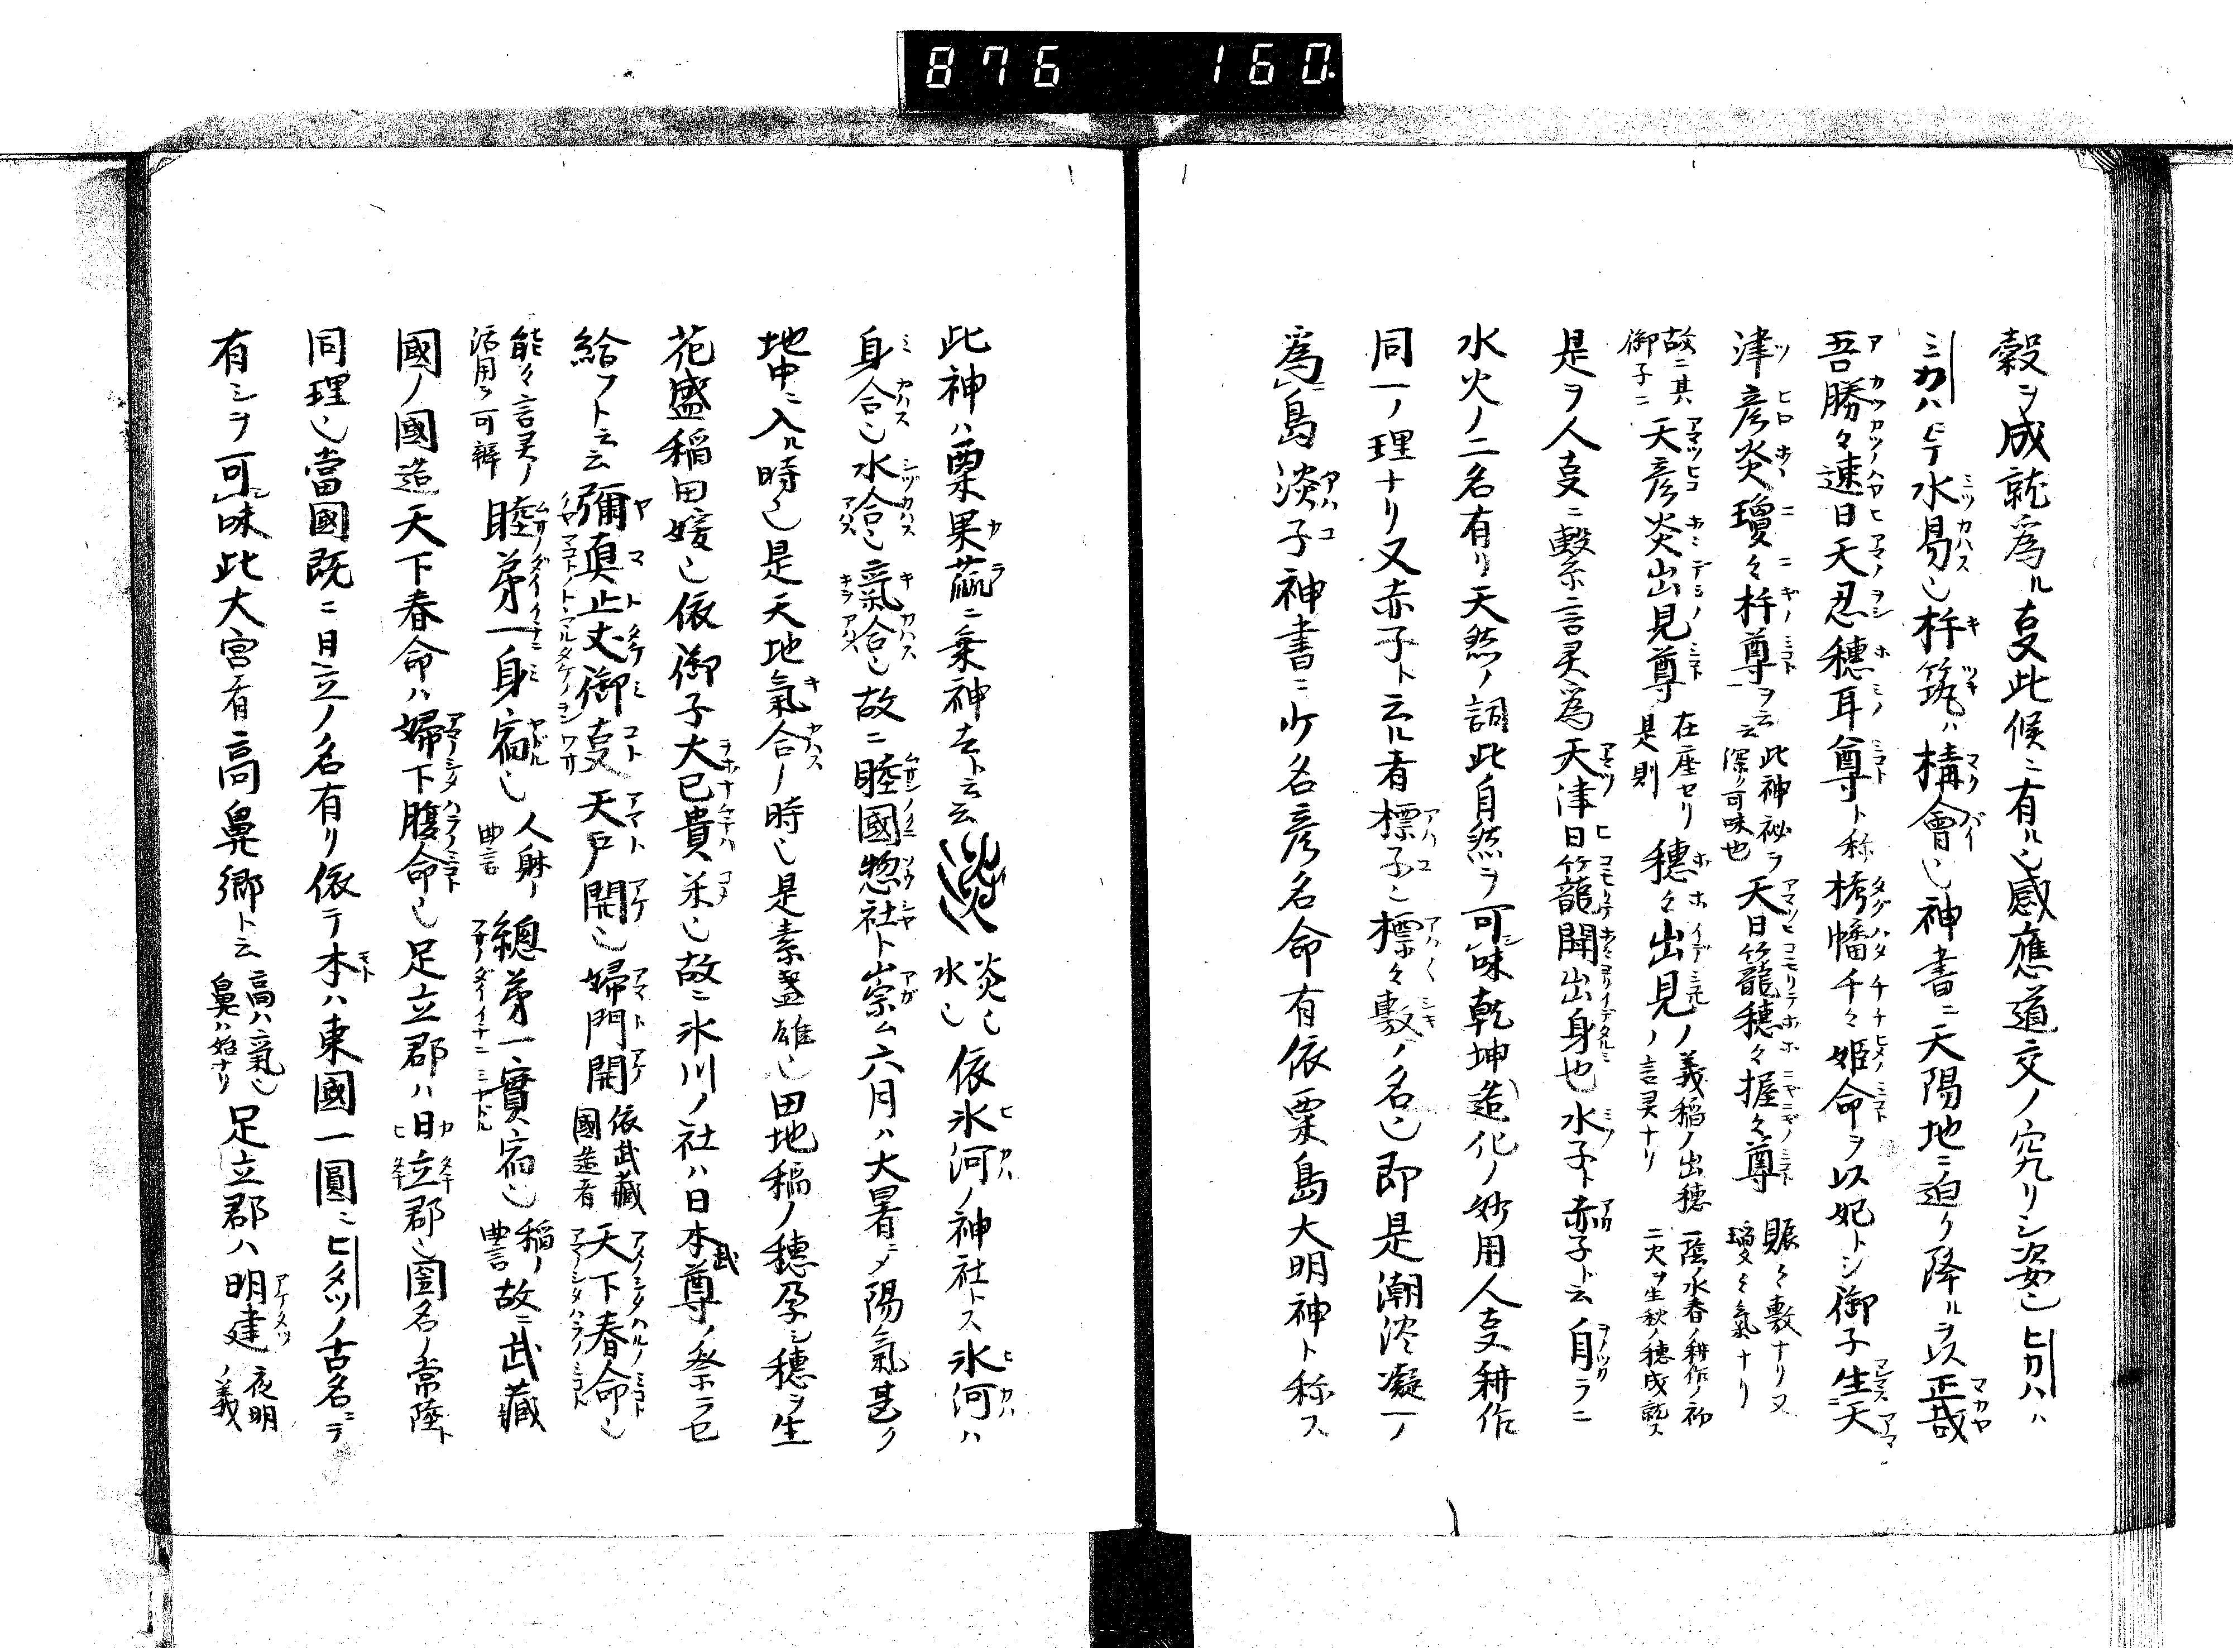 876 160.
穀ヲ成就為ル㕝此候ニ有ル也感應道交ノ究リシ姿也ヒカハハ
ミカハニテ水易也杵筑ハ構會也神書ニ天陽地ニ迫ク降ルヲ以正哉
吾勝々速日天忍穂耳尊ト称栲幡千々姫命ヲ以妃トシ御子生天
津彦炎瓊々杵尊ヲ云云此神祕ヲ深ク可味也天日籠穂々握々尊賑々敷ナリ又瓊々氣ナリ
故ニ其御子ニ天彦炎出見尊在座セリ是則穂々出見ノ義稲ノ出穂ノ言灵ナリ一陰ノ水春ノ耕作ノ初二火ヲ生秋ノ穂成就ス
是ヲ人㕝ニ繫言灵為天津日籠開出身也水子ト赤子ト云自ラニ
水火ノ二名有リ天然ノ詞此自然ヲ可味乾坤造化ノ妙用人㕝耕作
同一ノ理ナリ又赤子ト云ル者標子ニ標々敷ノ名也即是潮淡凝一ノ
為島淡子神書ニ少名彦名命有依粟島大明神ト称ス
此神ハ粟果蓏ニ乗神去ト云云炎也水也依氷河ノ神社トス氷河ハ
身合也水合也氣合也故ニ睦國惣社ト崇ム六月ハ大暑ニメ陽氣甚ク
地中ニ入ル時也是天地氣合ノ時也是素盞雄也田地稲ノ穂孕シ穂ヲ生
花盛稲田媛也依御子大已貴ハ米也故ニ氷川ノ社ハ日本武尊ノ祭ラセ
給フト云云彌眞止丈御㕝天戸開也婦門開依武藏國造者天下春命也
能々言灵ノ活用ヲ可辨睦弟一身宿也人躰ノ曲言總弟一實宿也稲ノ曲言故ニ武藏
國ノ國造天下春命ハ婦下腹命也足立郡ハ日立郡也國名ノ常陸ト
同理也當國既ニ日立ノ名有リ依テ本ハ東國一圓ニヒタツノ古名ニテ
有シヲ可味此大宮有高鼻郷ト云高ハ氣也鼻ハ始ナリ足立郡ハ明建夜明ノ義